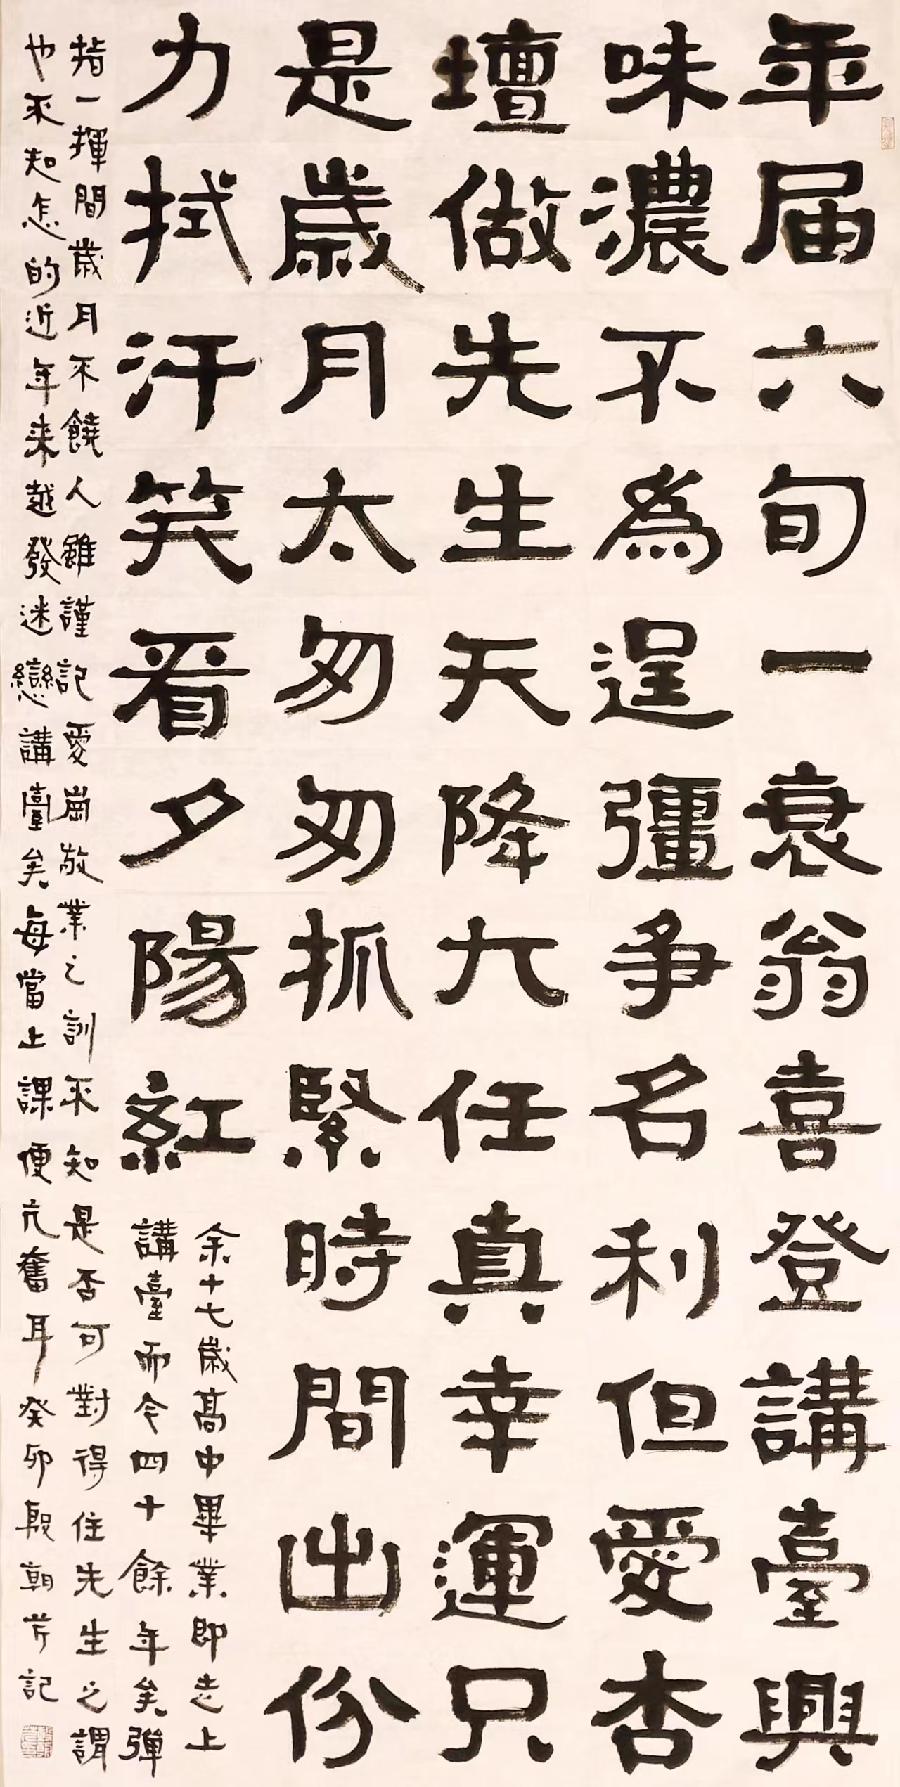 年届六旬一衰翁喜登講臺興
味濃不為逞彊争名利但愛杏
壇做先生天降大任真幸運只
是歲月太匆匆抓緊時間出份
力拭汗笑看夕陽紅
余十七歲高中畢業即走上
講臺而今四十餘年矣彈
指一揮間歲月不饒人雖謹記愛崗敬業之訓不知是否可對得住先生之謂
也不知怎的近年来越發迷戀講臺矣每當上課便亢奮耳癸卯殷朝芹記